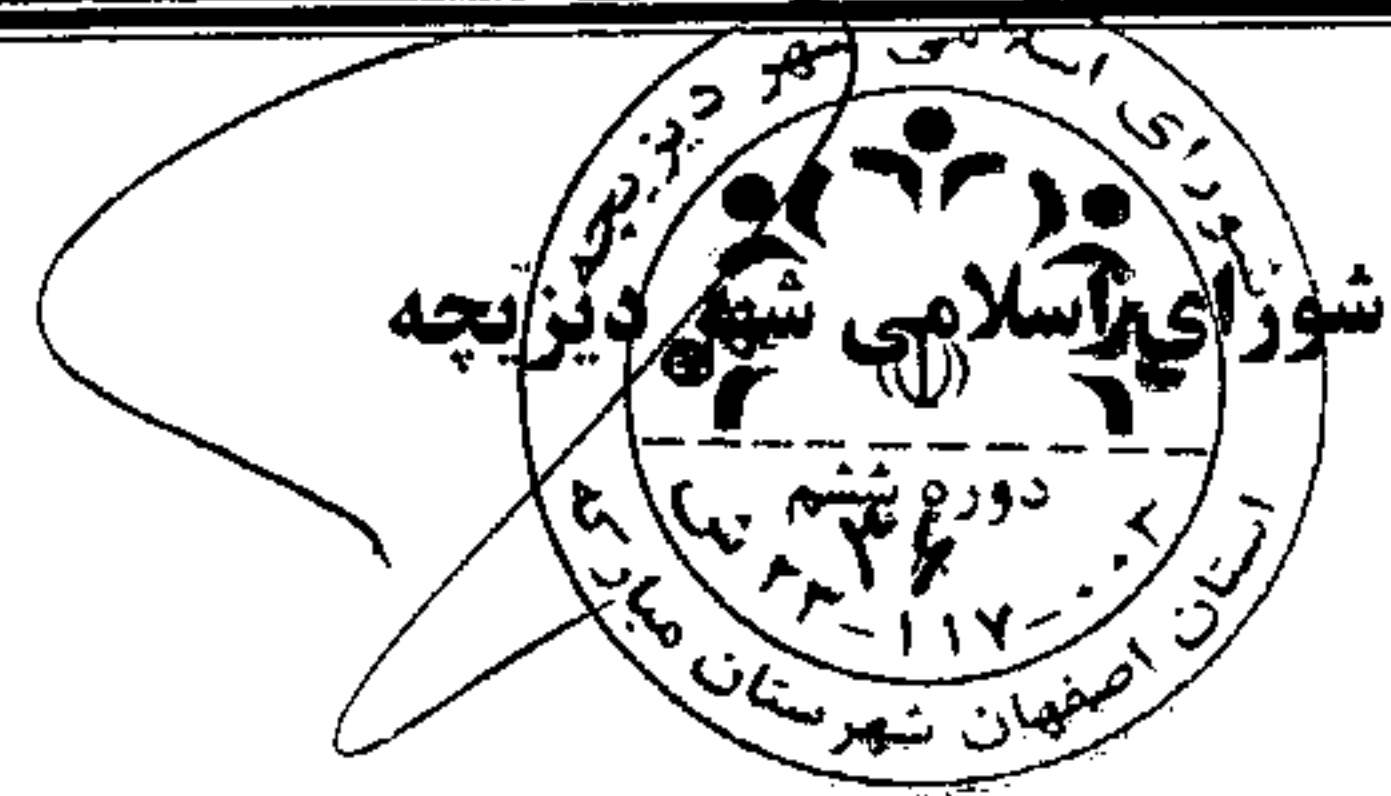 شورای اسلامی شهر دیزیچه
شورای اسلامی شهر دیزیچه
دوره ششم
۳۶
۲۳-۱۱۷-۰۰۲ ش
استان اصفهان شهرستان مبارکه